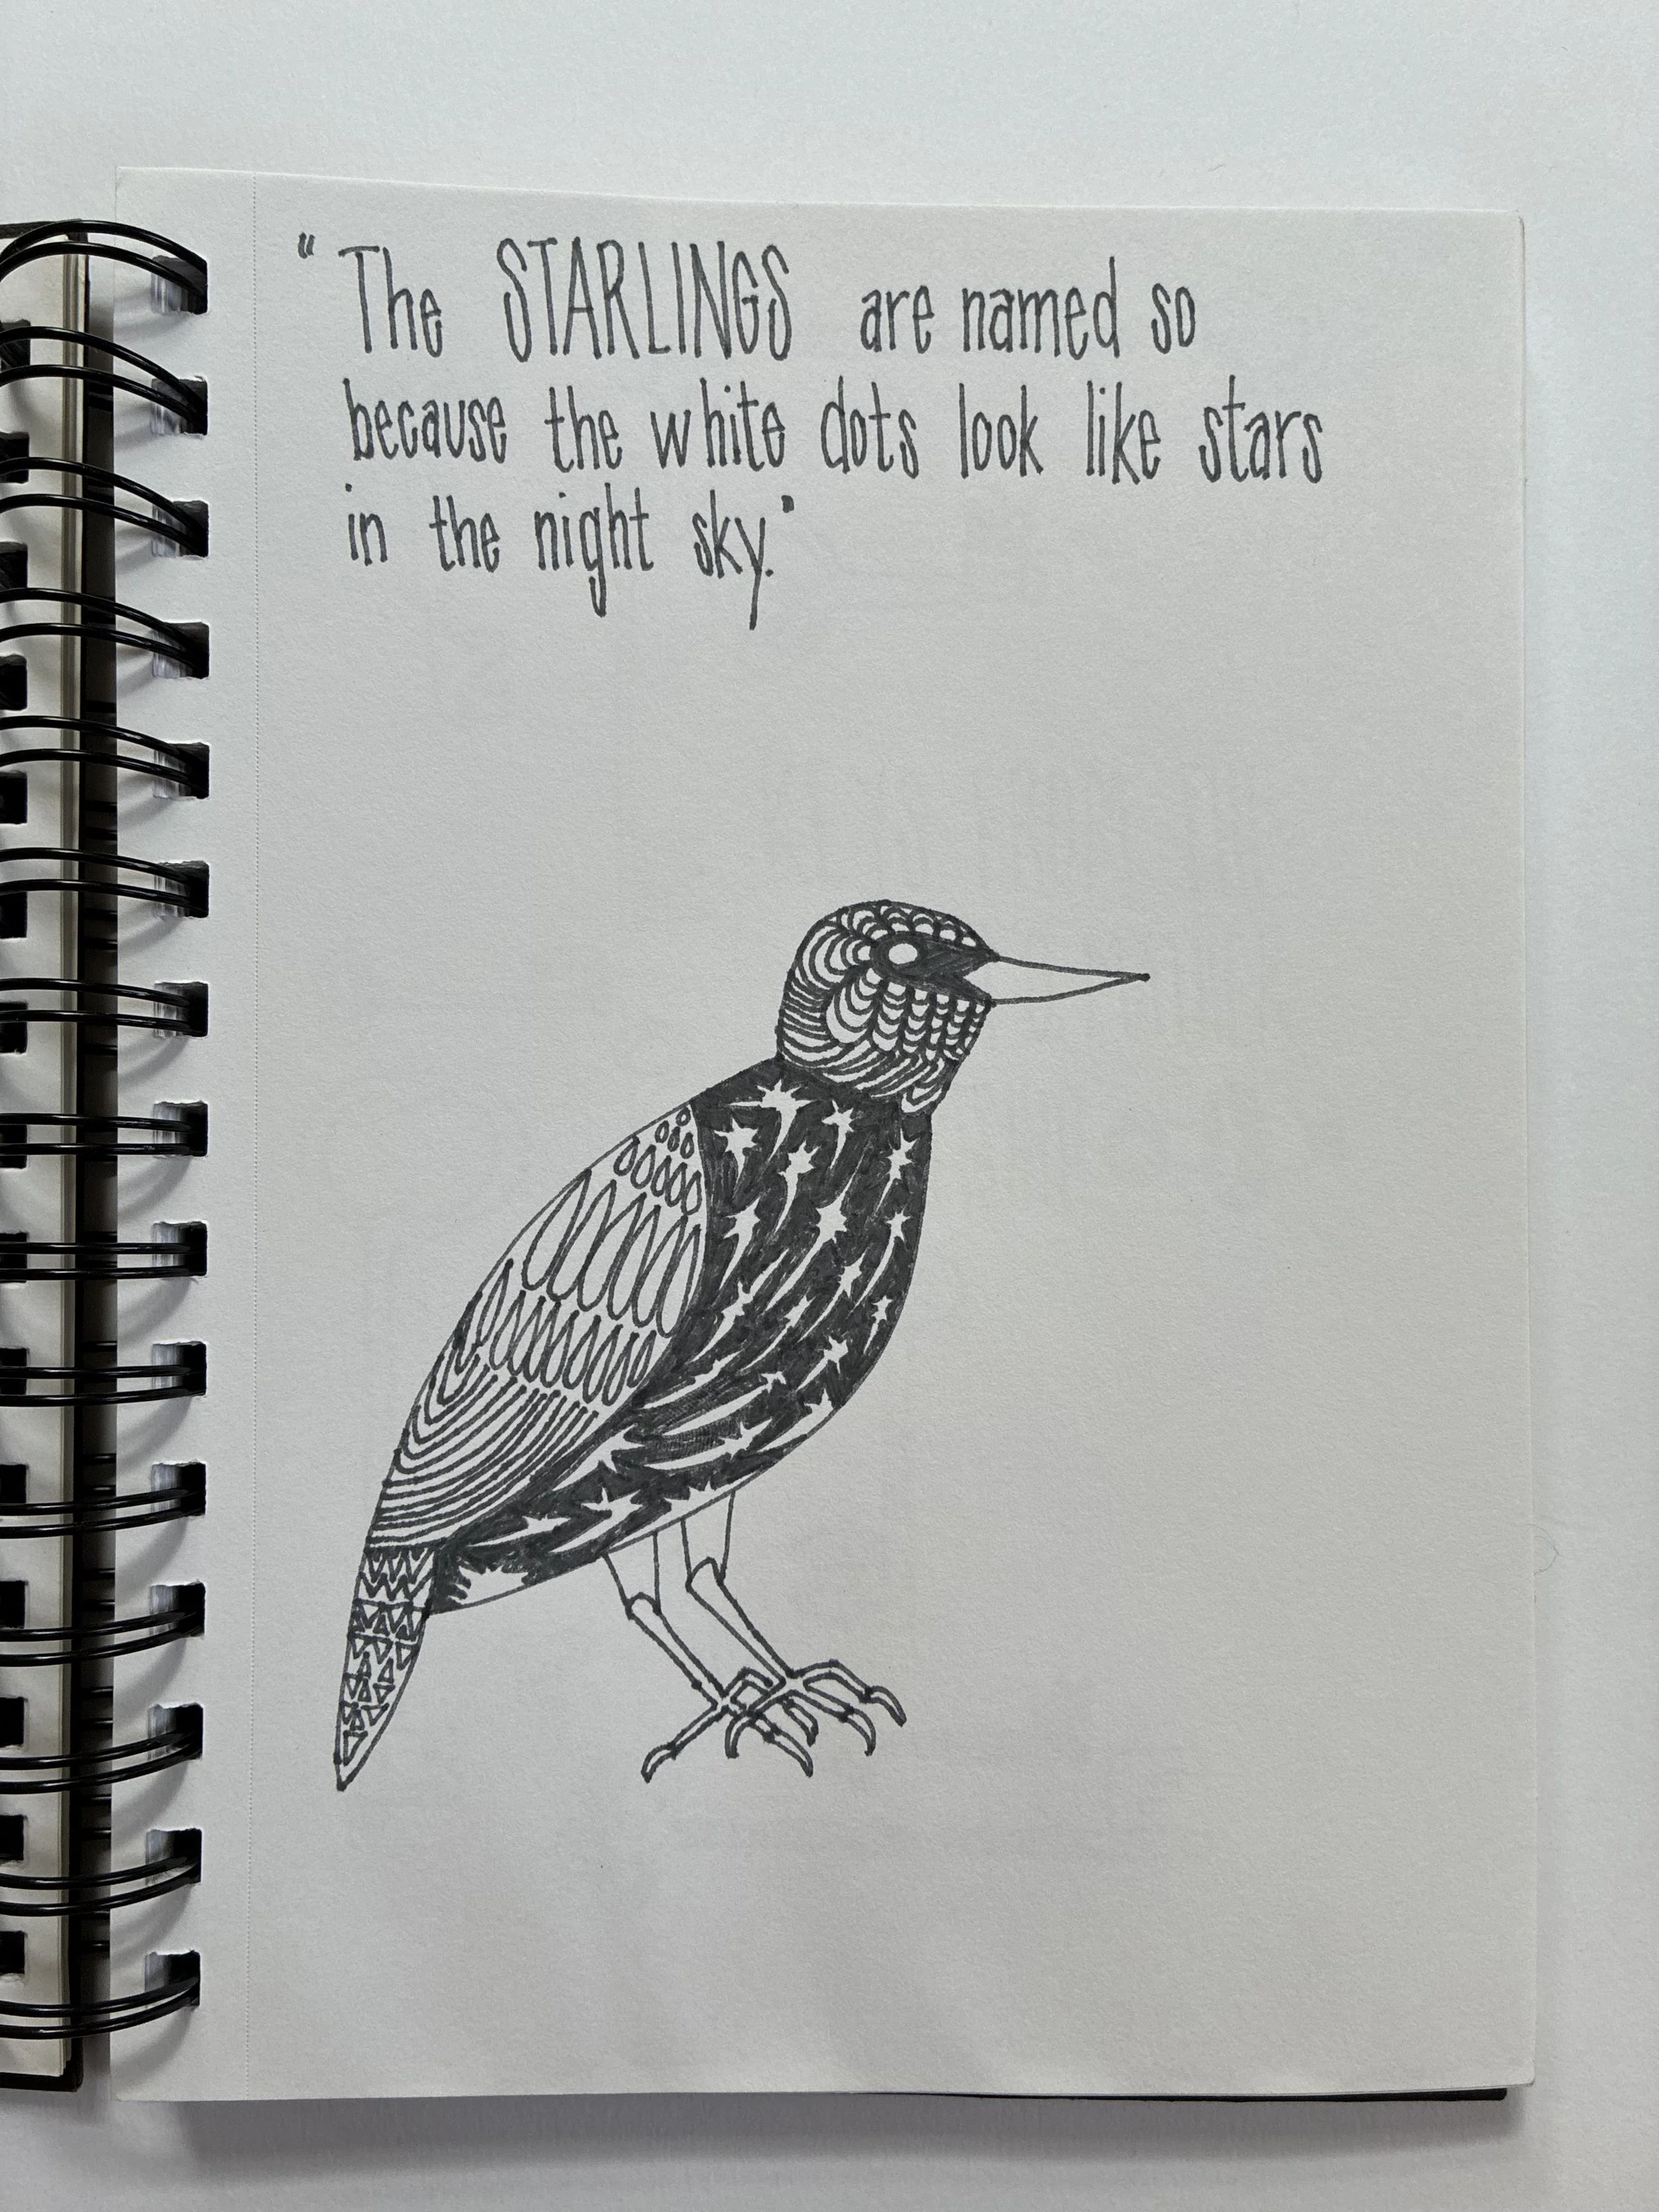 "The STARLINGS are named so
because the white dots look like stars
in the night sky."